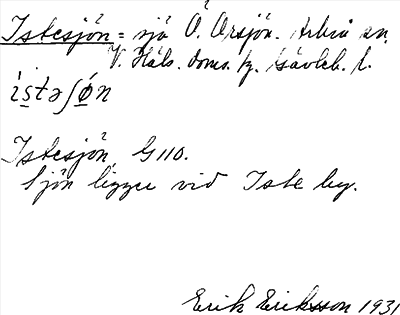 Istesjön = sjö Ö. Örsjön. Arbrå sn.
V. Häls. doms. tg. Gävleb. l.
ìs̲təʃǿ̲n
Istesjön, G110.
Sjön ligger vid Iste by.
Erik Eriksson 1931